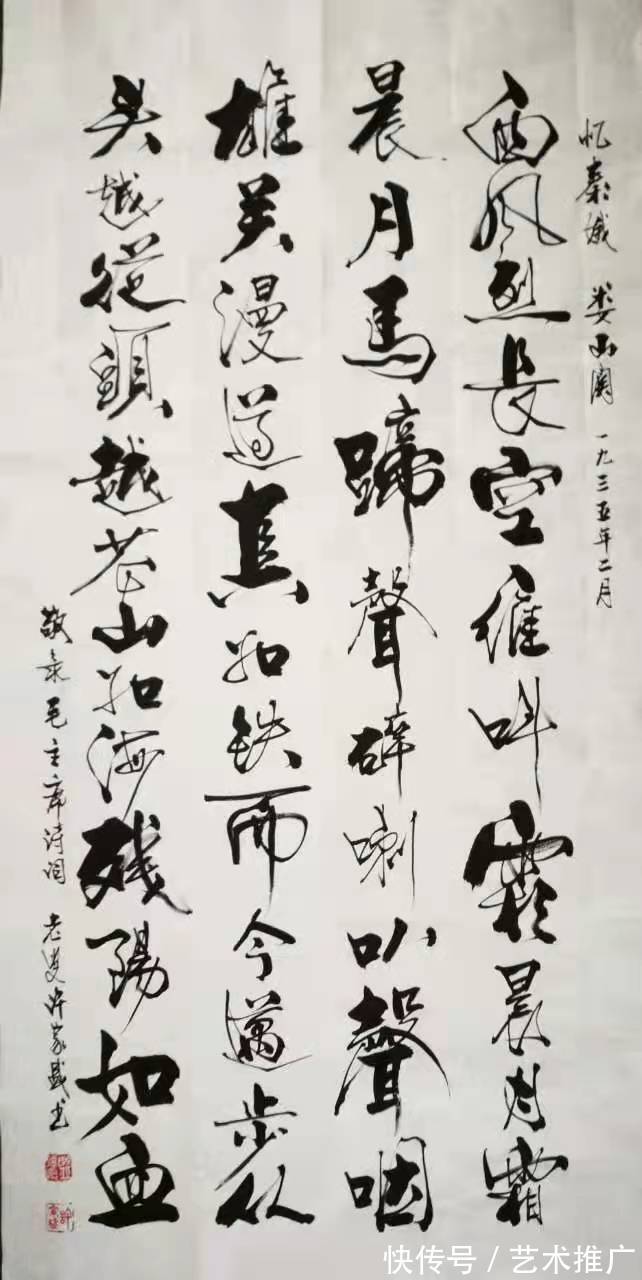 忆秦娥 娄山関 一九三五年二月
西风烈長空雁叫霜晨月霜
晨月馬蹄聲碎喇叭聲咽
雄关漫道真如铁而今邁步从
头越從頭越苍山如海残陽如血
敬录毛主席诗词 老叟许家盛书
快传号 / 艺术推广